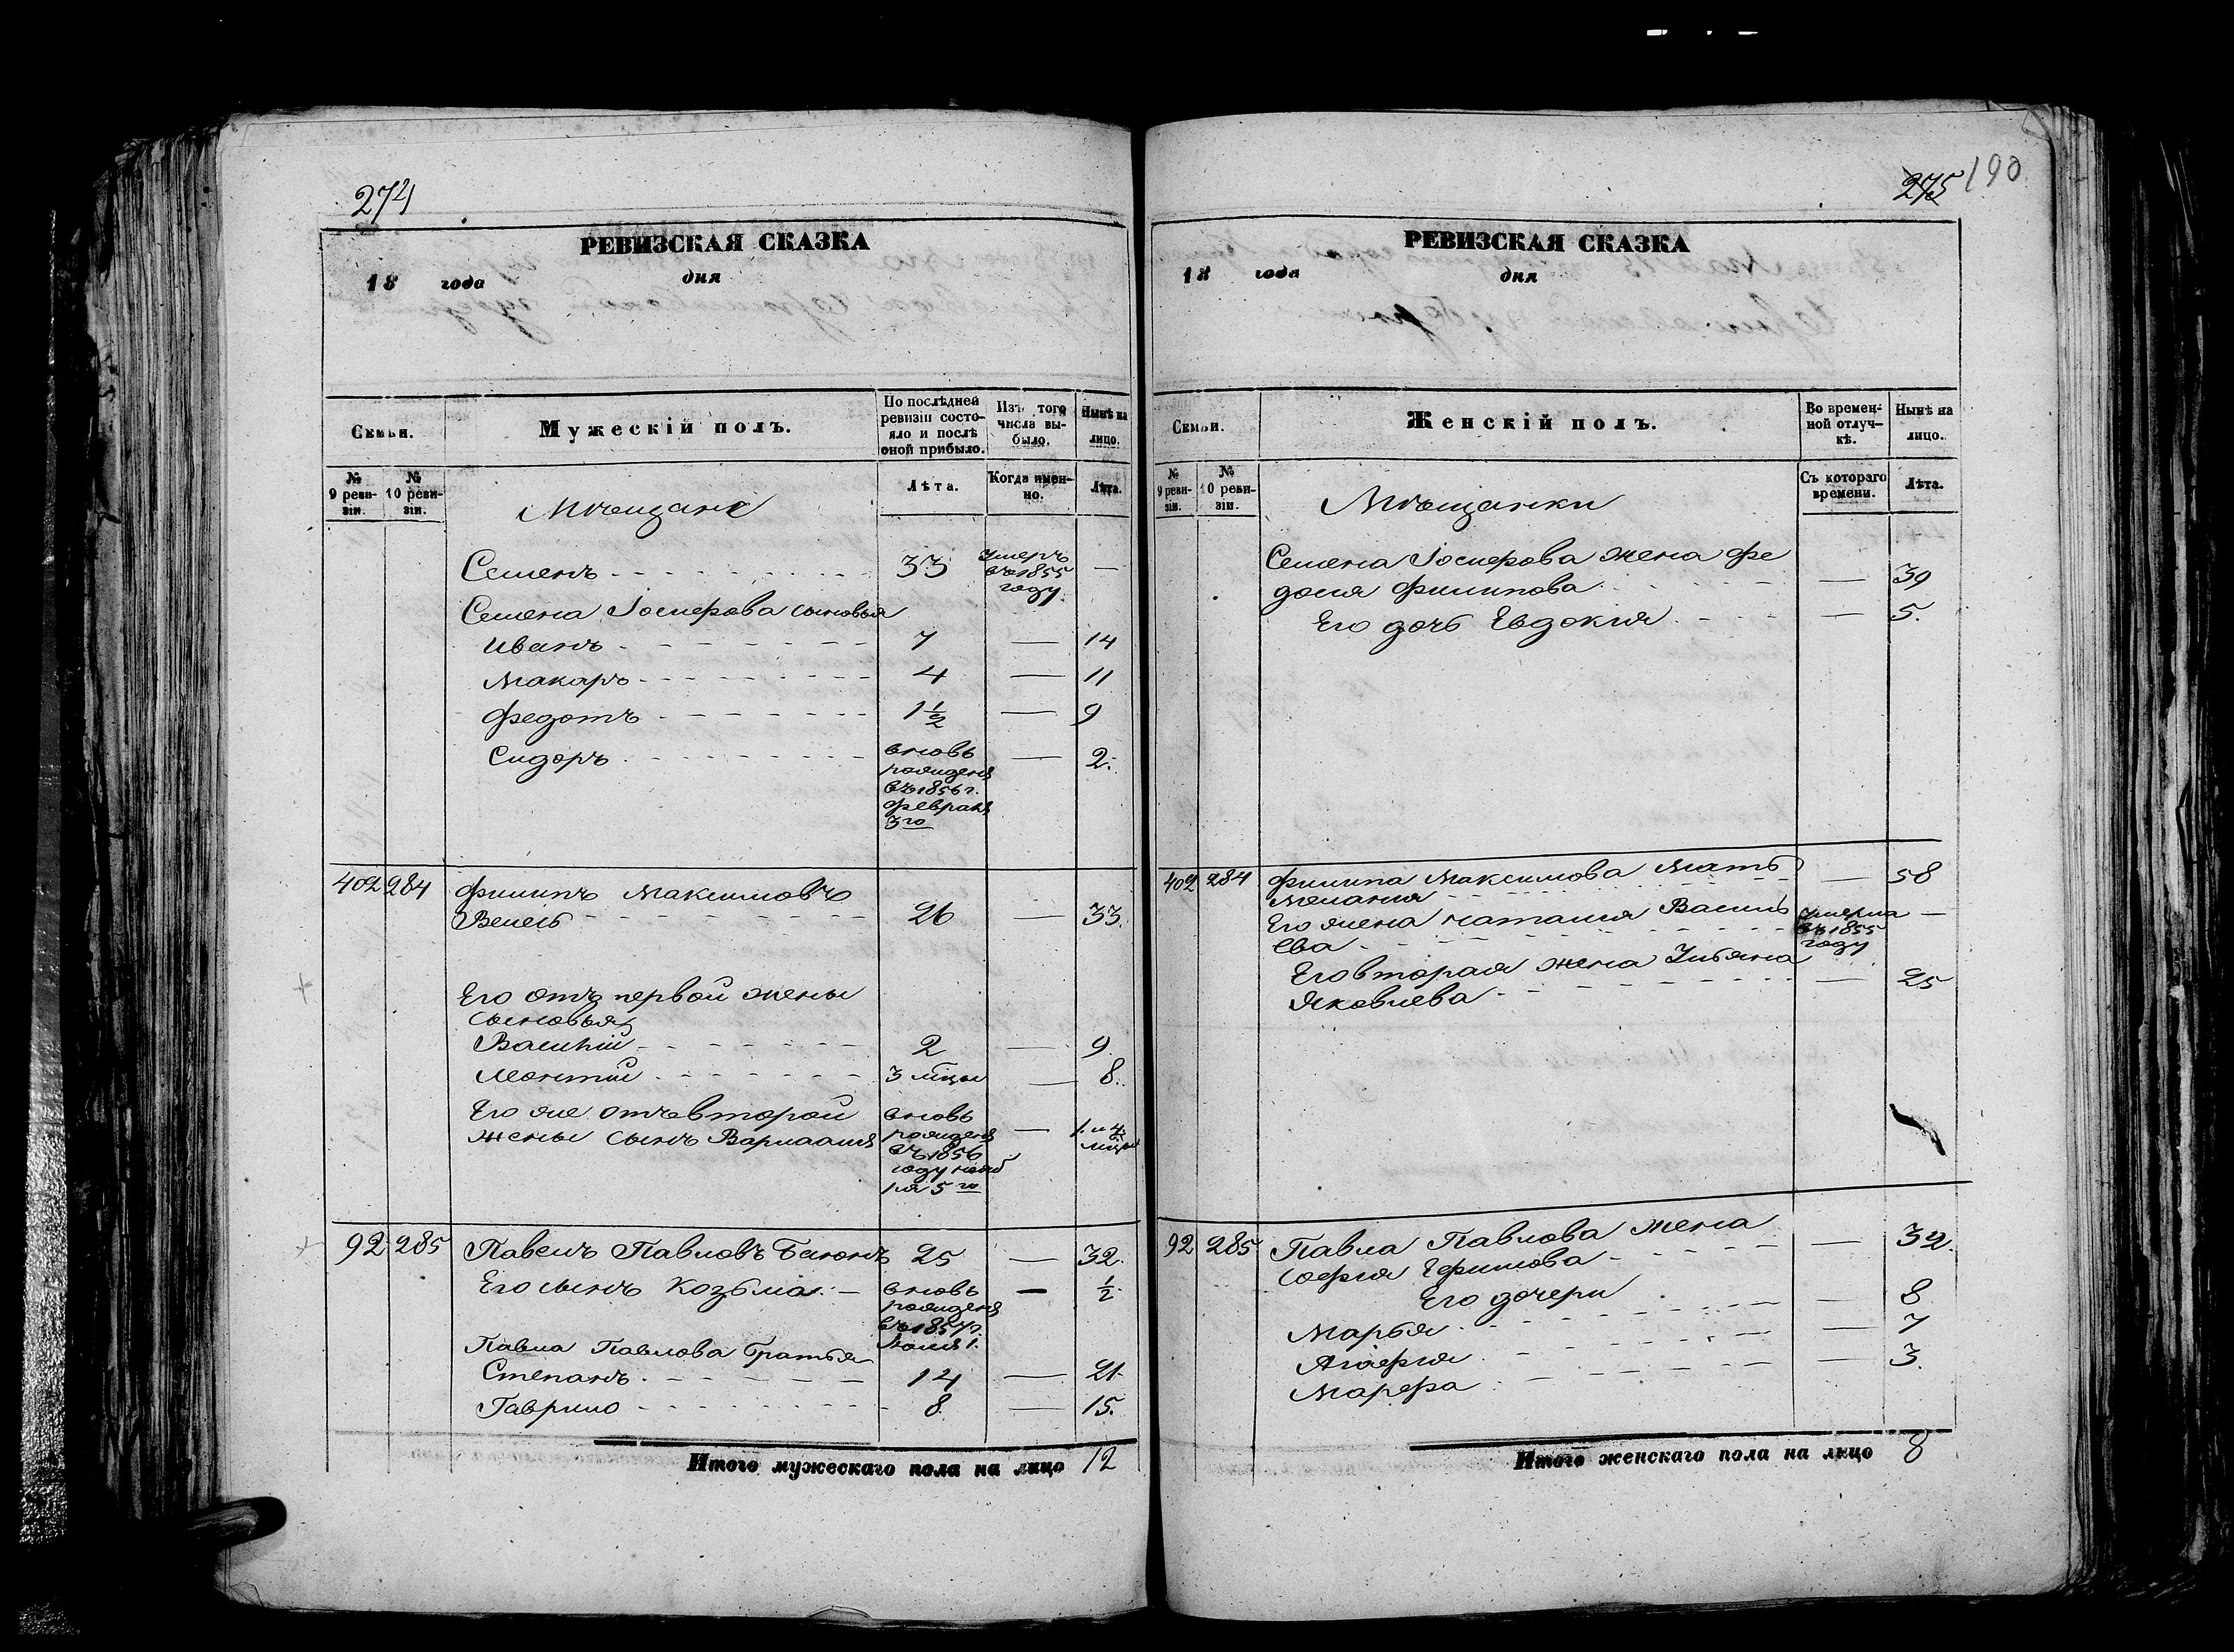 274
РЕВИЗСКАЯ СКАЗКА
18 года дня
Семьи.
Мужескій полъ.
По послѣдней ревизіи состояло и послѣ оной прибыло.
Изъ того числа выбыло.
Нынѣ на лицо.
№ 9 ревизіи.
№ 10 ревизіи.
Мѣщане
Лѣта.
Когда именно.
Лѣта.
Семенъ 33 умеръ въ 1855 году —
Семена Іосифова сыновья
Иванъ 7 — 14
Макаръ 4 — 11
Федотъ 1 1/2 — 9
Сидоръ вновь рожденъ въ 1856 г. февраля 3го — 2.
402 284 Филипъ Максимовъ
Велегъ 26 — 33.
Его отъ первой жены
сыновья
Василій 2 — 9
Леонтій 3 мѣцы — 8.
Его же отъ второй
жены сынъ Варлаамъ вновь рожденъ въ 1856 году — 1. и 4. мѣцы
92 285 Павелъ Павловъ 25 — 32.
Его сынъ Козьма — вновь рожденъ въ 1857 г. — 1/2.
Павла Павлова братья
Степанъ 14 — 21.
Гаврило 8. — 15.
Итого мужескаго пола на лицо 12
275 190
РЕВИЗСКАЯ СКАЗКА
18 года дня
Семьи.
Женскій полъ.
Во временной отлучкѣ.
Нынѣ на лицо.
№ 9 ревизіи.
№ 10 ревизіи.
Мѣщанки
Съ котораго времени.
Лѣта.
Семена Іосифова жена Фе
досія Филипова — 39
Его дочь Евдокия — 5.
402 284 Филипа Максимова мать — 58
Меланія
Его жена Наталія Василь умерла въ 1855 году —
ева
Его вторая жена Ульяна
Яковлева — 25
92 285 Павла Павлова жена — 32.
Софія Ефимова
Его дочери
Марья — 8
Агафія — 7
Марфа — 3.
Итого женскаго пола на лицо 8